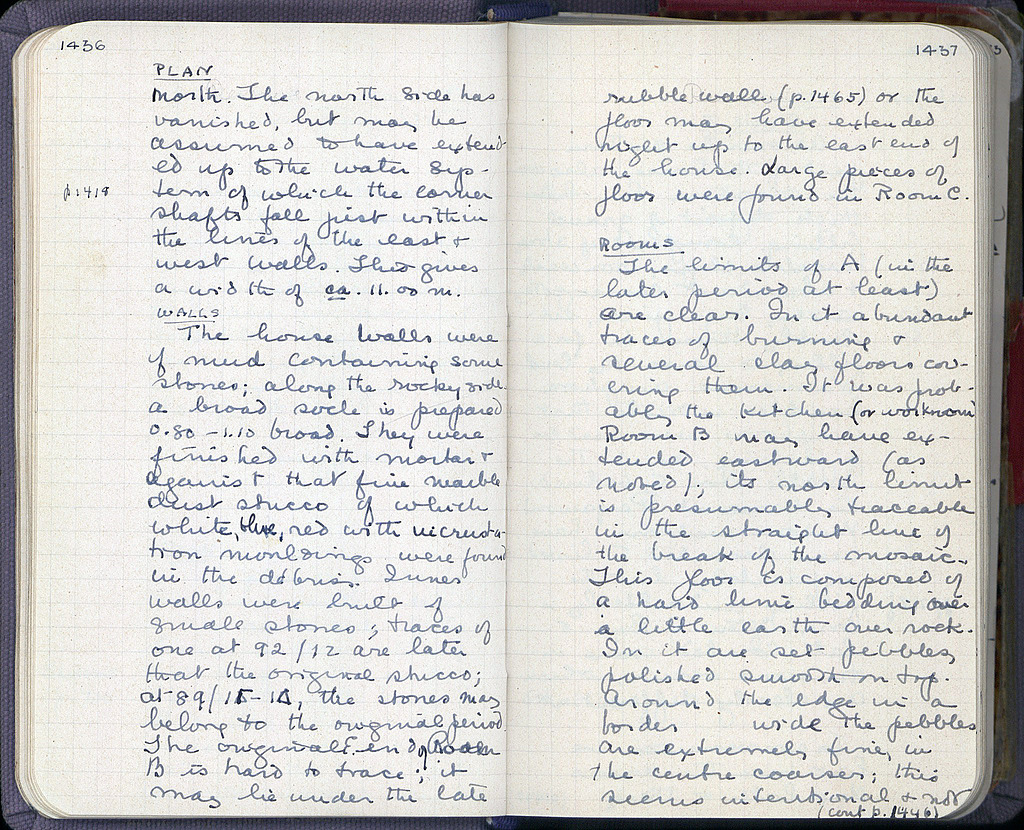 1436
PLAN
north. The north side has
vanished, but may be
assumed to have extend-
ed up to the water sys-
p 1418
tem of which the corner
shafts fall just within
the lines of the east +
west walls. This gives
a width of ca. 11.00 m.
WALLS
The house walls were
of mud containing some
stones; along the rocky side
a broad socle is prepared
0.80 - 1.10 broad. They were
finished with mortar +
against that fine marble
dust stucco of which
white, blue, red with incrusta-
tion mouldings were found
in the débris. Inner
walls were built of
small stones; traces of
one at 92/12 are later
that the original stucco;
at 89/ the stones may
belong to the original period.
The original E. end of Room
B is hard to trace; it
may lie under the late
1437
rubble wall (p. 1465) or the
floor may have extended
right up to the east end of
the house. Large pieces of
floor were found in Room C.
ROOMS
The limits of A (in the
later period at least)
are clear. In it abundant
traces of burning +
several clay floors cov-
ering them. It was prob-
ably the kitchen (or workroom)
Room B may have ex-
tended eastward (as
noted); its north limit
is presumably traceable
in the straight line of
the break of the mosaic.
This floor is composed of
a hard lime bedding over
a little earth over rock.
In it are set pebbles,
polished smooth on top.
Around the edge in a
border wide the pebbles
are extremely fine, in
the centre coarser; this
seems intentional + not
(cont p. 1446)